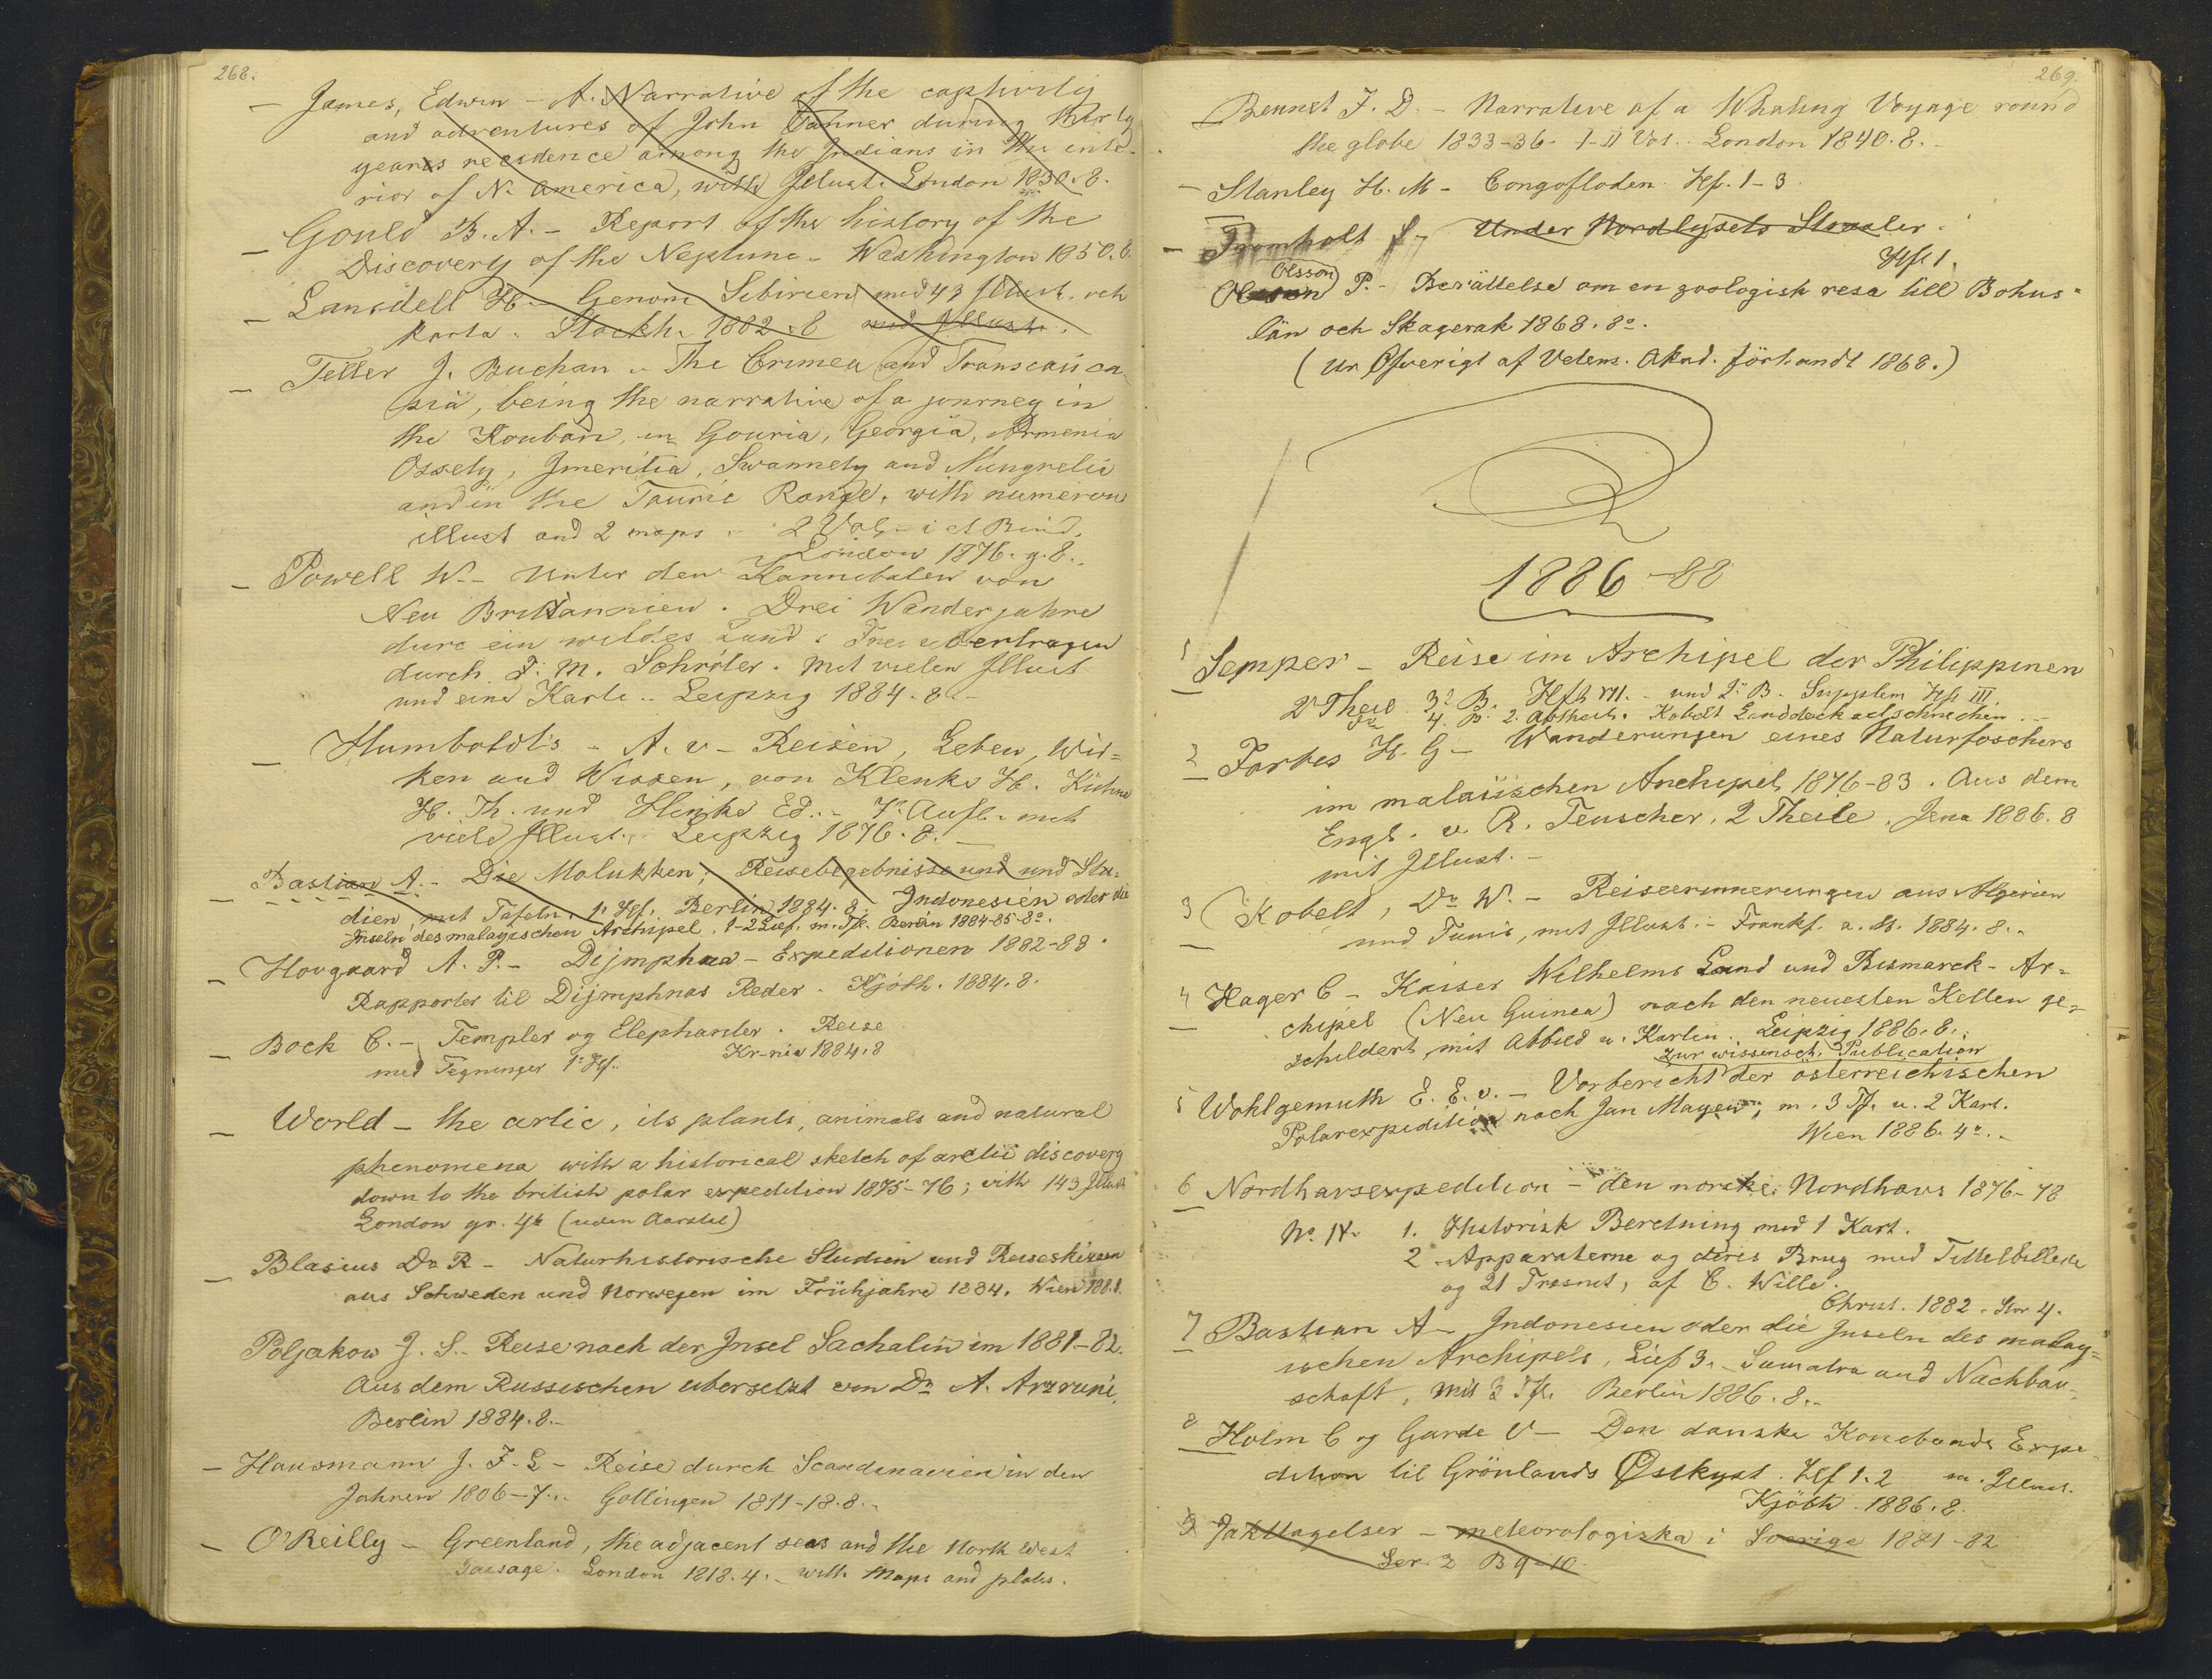 268.
– James, Edwin – A. Narrative of the captivity
and adventures of John Tanner during thirty
years recidence among the Indians in the inte-
rior of N. America, with Illust. London 1830. 8.
– Gould B. A. – Report of the history of the
Discovery of the Neptune – Washington 1850. 8.
– Lansdell H. – Genom Sibirien med 43 Illust. och
karta. Stockh. 1882. 8 med Illustr.
– Telfer J. Buchan – The Crimea and Transcauca-
sia, being the narrative of a journey in
the Kouban, in Gouria, Georgia, Armenia
Ossety, Imeritia, Swannety and Mingrelia
and in the Tauric Range, with numerou
illust and 2 maps – 2 Vol. – i et Bind.
London 1876. g. 8.
– Powell W. – Unter den Kannibalen von
Neu Brittannien. Drei Wanderjahre
durc ein wildes Land. Frei uebertragen
durch F. M. Schröter. Mit vielen Illust
und eine Karte. Leipzig 1884. 8. –
– Humboldt's – A. v – Reisen, Leben, Wir=
ken und Wissen, von Klenke H. Kühne
H. Th. und Hinke Ed. – 7. Aufl. mit
viele Illust. Leipzig 1876. 8. –
– Bastian A. – Die Molukken; Reisebegebnisse und und Stu=
dien mit Tafeln. 1. Hf. Berlin 1884. 8. Indonesien oder die
Inseln des malayischen Archipel. 1-2 Lief. m. Tfl. Berlin 1884-85. 8o.
– Hovgaard A. P. – Dijmphna – Expeditionen 1882-83.
Rapporter til Dijmphnas Reder. Kjöbh. 1884. 8.
– Bock C. – Templer og Elephanter. Reise
med Tegninger 1. Hf. Kr-nia 1884. 8
– World – the artic, its plants, animals and natural
phenomena with a historical sketch of arctic discovery
down to the british polar expedition 1875-76; with 143 Illust.
London gr. 4to (uden Aarstal)
– Blasius Dr R – Naturhistorische Studien und Reiseskizzen
aus Schweden und Norwegen im Frühjahre 1884. Wien
Poljakow J. S. – Reise nach der Insel Sachalin im 1881-82.
Aus dem Russischen ubersetzt von Dr A. Arzruni,
Berlin 1884. 8. –
– Hausmann J. F. L – Reise durch Scandinavien in den
Jahren 1806-7. Gottingen 1811-18. 8. –
– O'Reilly – Greenland, the adjacent seas and the North West
Passage. London 1818. 4. – with Maps and plates.
269.
Bennet F. D. – Narrative of a Whaling Voyage round
the globe 1833-36. I-II Vol. London 1840. 8. –
– Stanley H. M – Congofloden. Hf. 1-3.
– Tromholt S – Under Nordlysets Straaler.
Hft 1.
Olsson
P. – Berättelse om en zoologisk resa till Bohus=
län och Skagerak 1868. 8o.
(Ur Öfverigt af Vetens. Akad. förhandl 1868.)
1886-88
1 Semper – Reise im Archipel der Philippinen
2r Theil 3r B. Hft VII. – und 2r B. Supplem Hft III
4. B. 2. Abtheil. Kobelt Landdeckelschnecken. –
2 Forbes H. G – Wanderungen eines Naturfoschers
im malaiischen Archipel 1876-83. Aus dem
Engl. v. R. Teuscher, 2 Theile. Jena 1886. 8
mit Illust. –
3 Kobelt, Dr W. – Reiseerinnerungen aus Algerien
und Tunis, mit Illust. – Frankf. a. M. 1884. 8. –
4 Hager C – Kaiser Wilhelms Land und Bismarck-Ar=
chipel (Neu Guinea) nach den neuesten Kellen ge=
schildert, mit Abbild u. Karten. Leipzig 1886. 8.
zur wissensch. Publication
5 Wohlgemuth E. E. v. – Vorbericht der österreichischen
Polarexpedition nach Jan Mayen, m. 3 Tfl. u. 2 Kart.
Wien 1886. 4o. –
6 Nordhavsexpedition – den norske Nordhavs 1876-78
No. IV. 1. Historisk Beretning med 1 Kart.
2 Apparaterne og deres Brug med Tittelbillede
og 21 Træsnit, af C. Wille.
Christ. 1882. Stor 4.
7 Bastian A – Indonesien oder die Inseln des malay=
ischen Archipels, Lief 3. – Sumatra und Nachbar-
schaft, mit 3 Tfl. Berlin 1886. 8. –
8 Holm C og Garde V – Den danske Konebaads Expe
dition til Grönlands Østkyst. Hf 1. 2 m. Illust.
Kjöbh. 1886. 8.
9 Jakttagelser – meteorologiska i Sverige 1881-82
Ser. 2 B 9-10